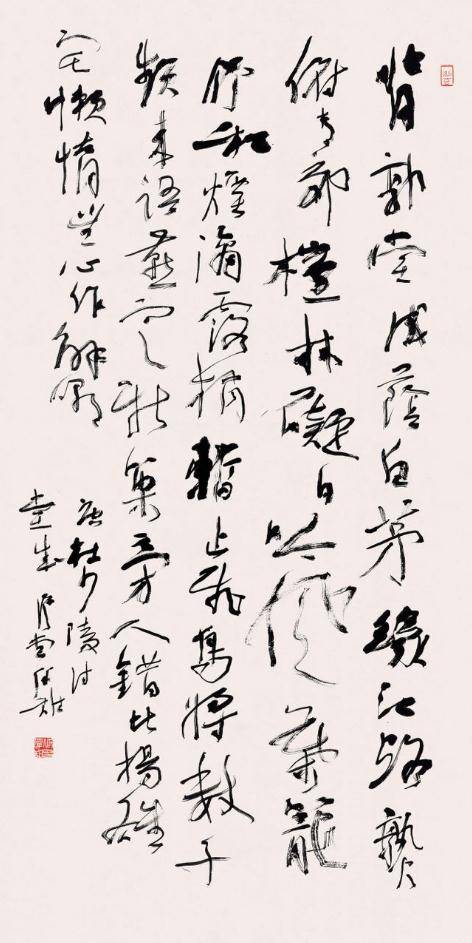 背郭堂成蔭白茅緣江路熟
俯青郊榿林礙日吟風葉籠
竹和煙滴露梢暫止飛烏將數子
頻來語燕定新巢旁人錯比楊雄
宅懶惰無心作解嘲
唐杜少陵詩
堂成